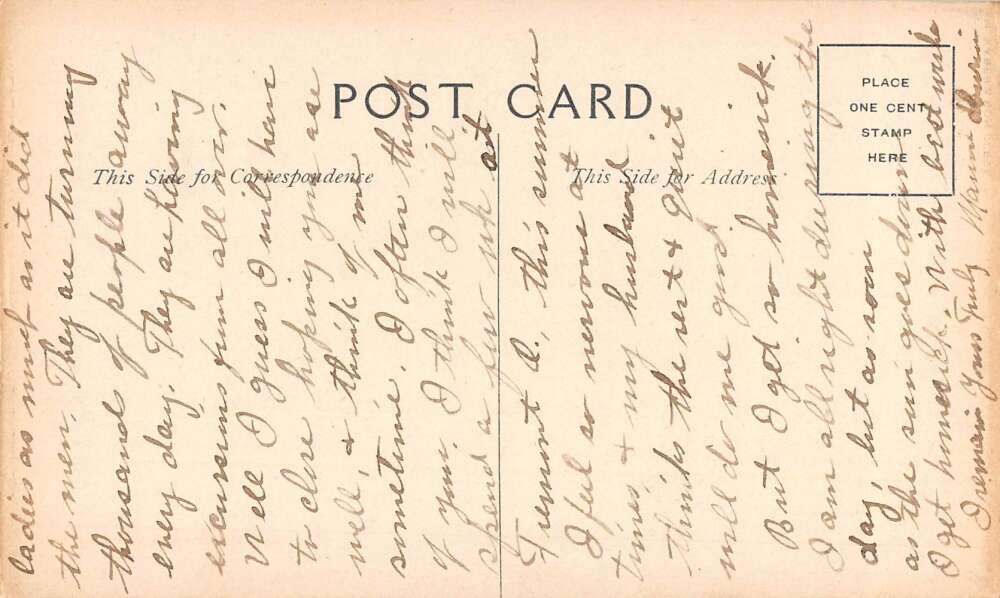 POST CARD
This Side for Correspondence
This Side for Address
PLACE
ONE CENT
STAMP
HERE
ladies as much as it did
the men. They are turning
thousands of people away
every day. They are having
excursions from all over.
Well I guess I will have
to close hoping you are
well, & think of me
sometime. I often think
of you. I think I will
spend a few wk at
Fremont O., this summer
I feel so nervous at
times, & my husband
thinks the rest & quiet
will do me good.
But I get so homesick.
I am all right during the
day, but as soon
as the sun goes down
I get homesick. With best wish
I remain Yours Truly Mamie